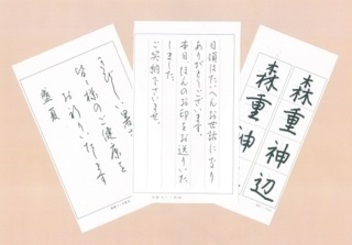 きびしい暑さ
皆々様のご健康を
お祈りいたします
盛夏
日頃はたいへんお世話になり
ありがとうございます。
本日ほんのお印をお送りいた
しました。
ご笑納下さいませ。
森重神辺
森重神